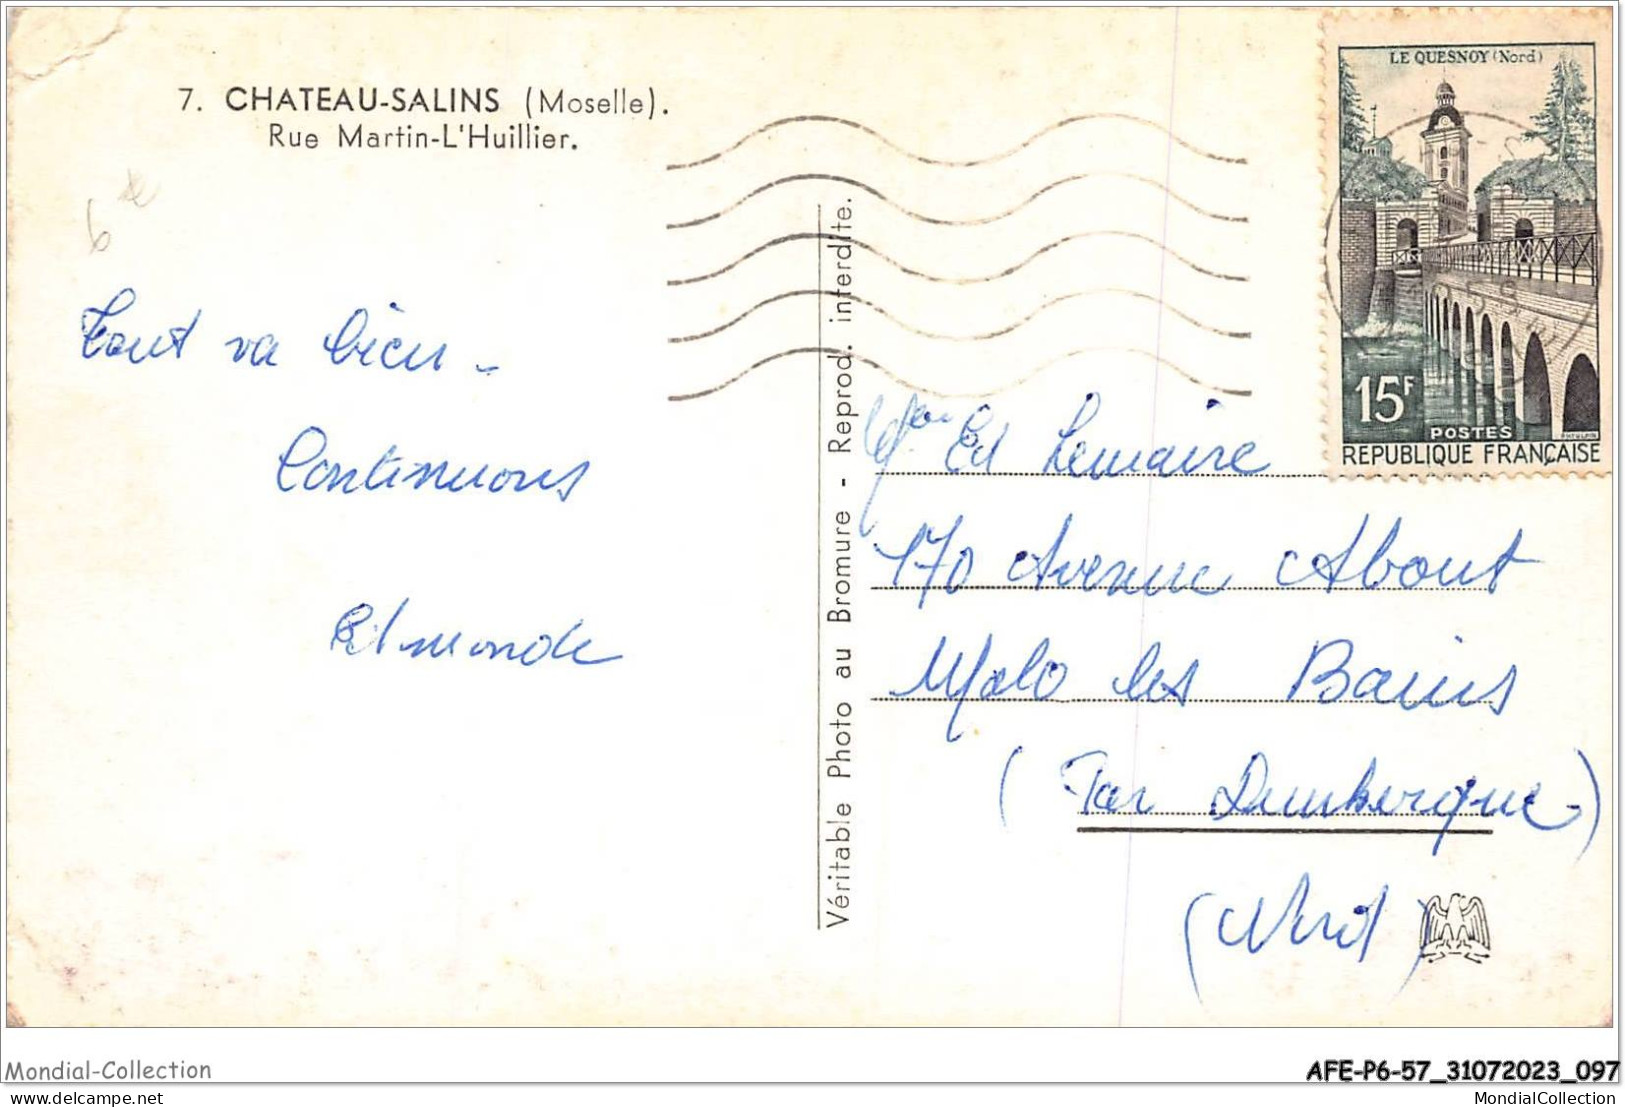 7. CHATEAU-SALINS (Moselle).
Rue Martin-L'Huillier.
6 €
Tout va bien -
Continuons
Edmonde
Véritable Photo au Bromure - Reprod. interdite.
LE QUESNOY (Nord)
15F
POSTES
REPUBLIQUE FRANÇAISE
Ed Lemaire
170 Avenue About
Malo les Bains
(Par Dunkerque)
(Nord)
Mondial-Collection
AFE-P6-57_31072023_097
delcampe.net
MondialCollection